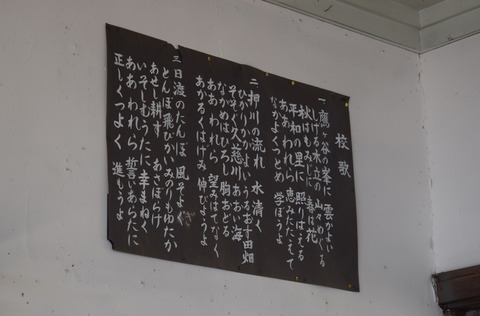 校歌
一 鷹ヶ谷の峯に 雲かよい
しげる木立の 山々めぐる
秋はもみじに 春は花
平和の里に 照りはえる
ああわれら 恵みたたえて
なかよくつとめ 学ぼうよ
二 押川の流れ 水清く
ひかりかがよい うるおす田畑
そそぐ久慈川 あおい海
ながめはひろし 胸おどる
ああわれら 望みはてなく
あかるくはげみ 伸びようよ
三 日渡のたんぼ 風そよぐ
とんぼ飛びかい みのりゆたか
あせし耕す あさぼらけ
いそしむうたに 幸まねく
ああわれら 誓いあらたに
正しくつよく 進もうよ